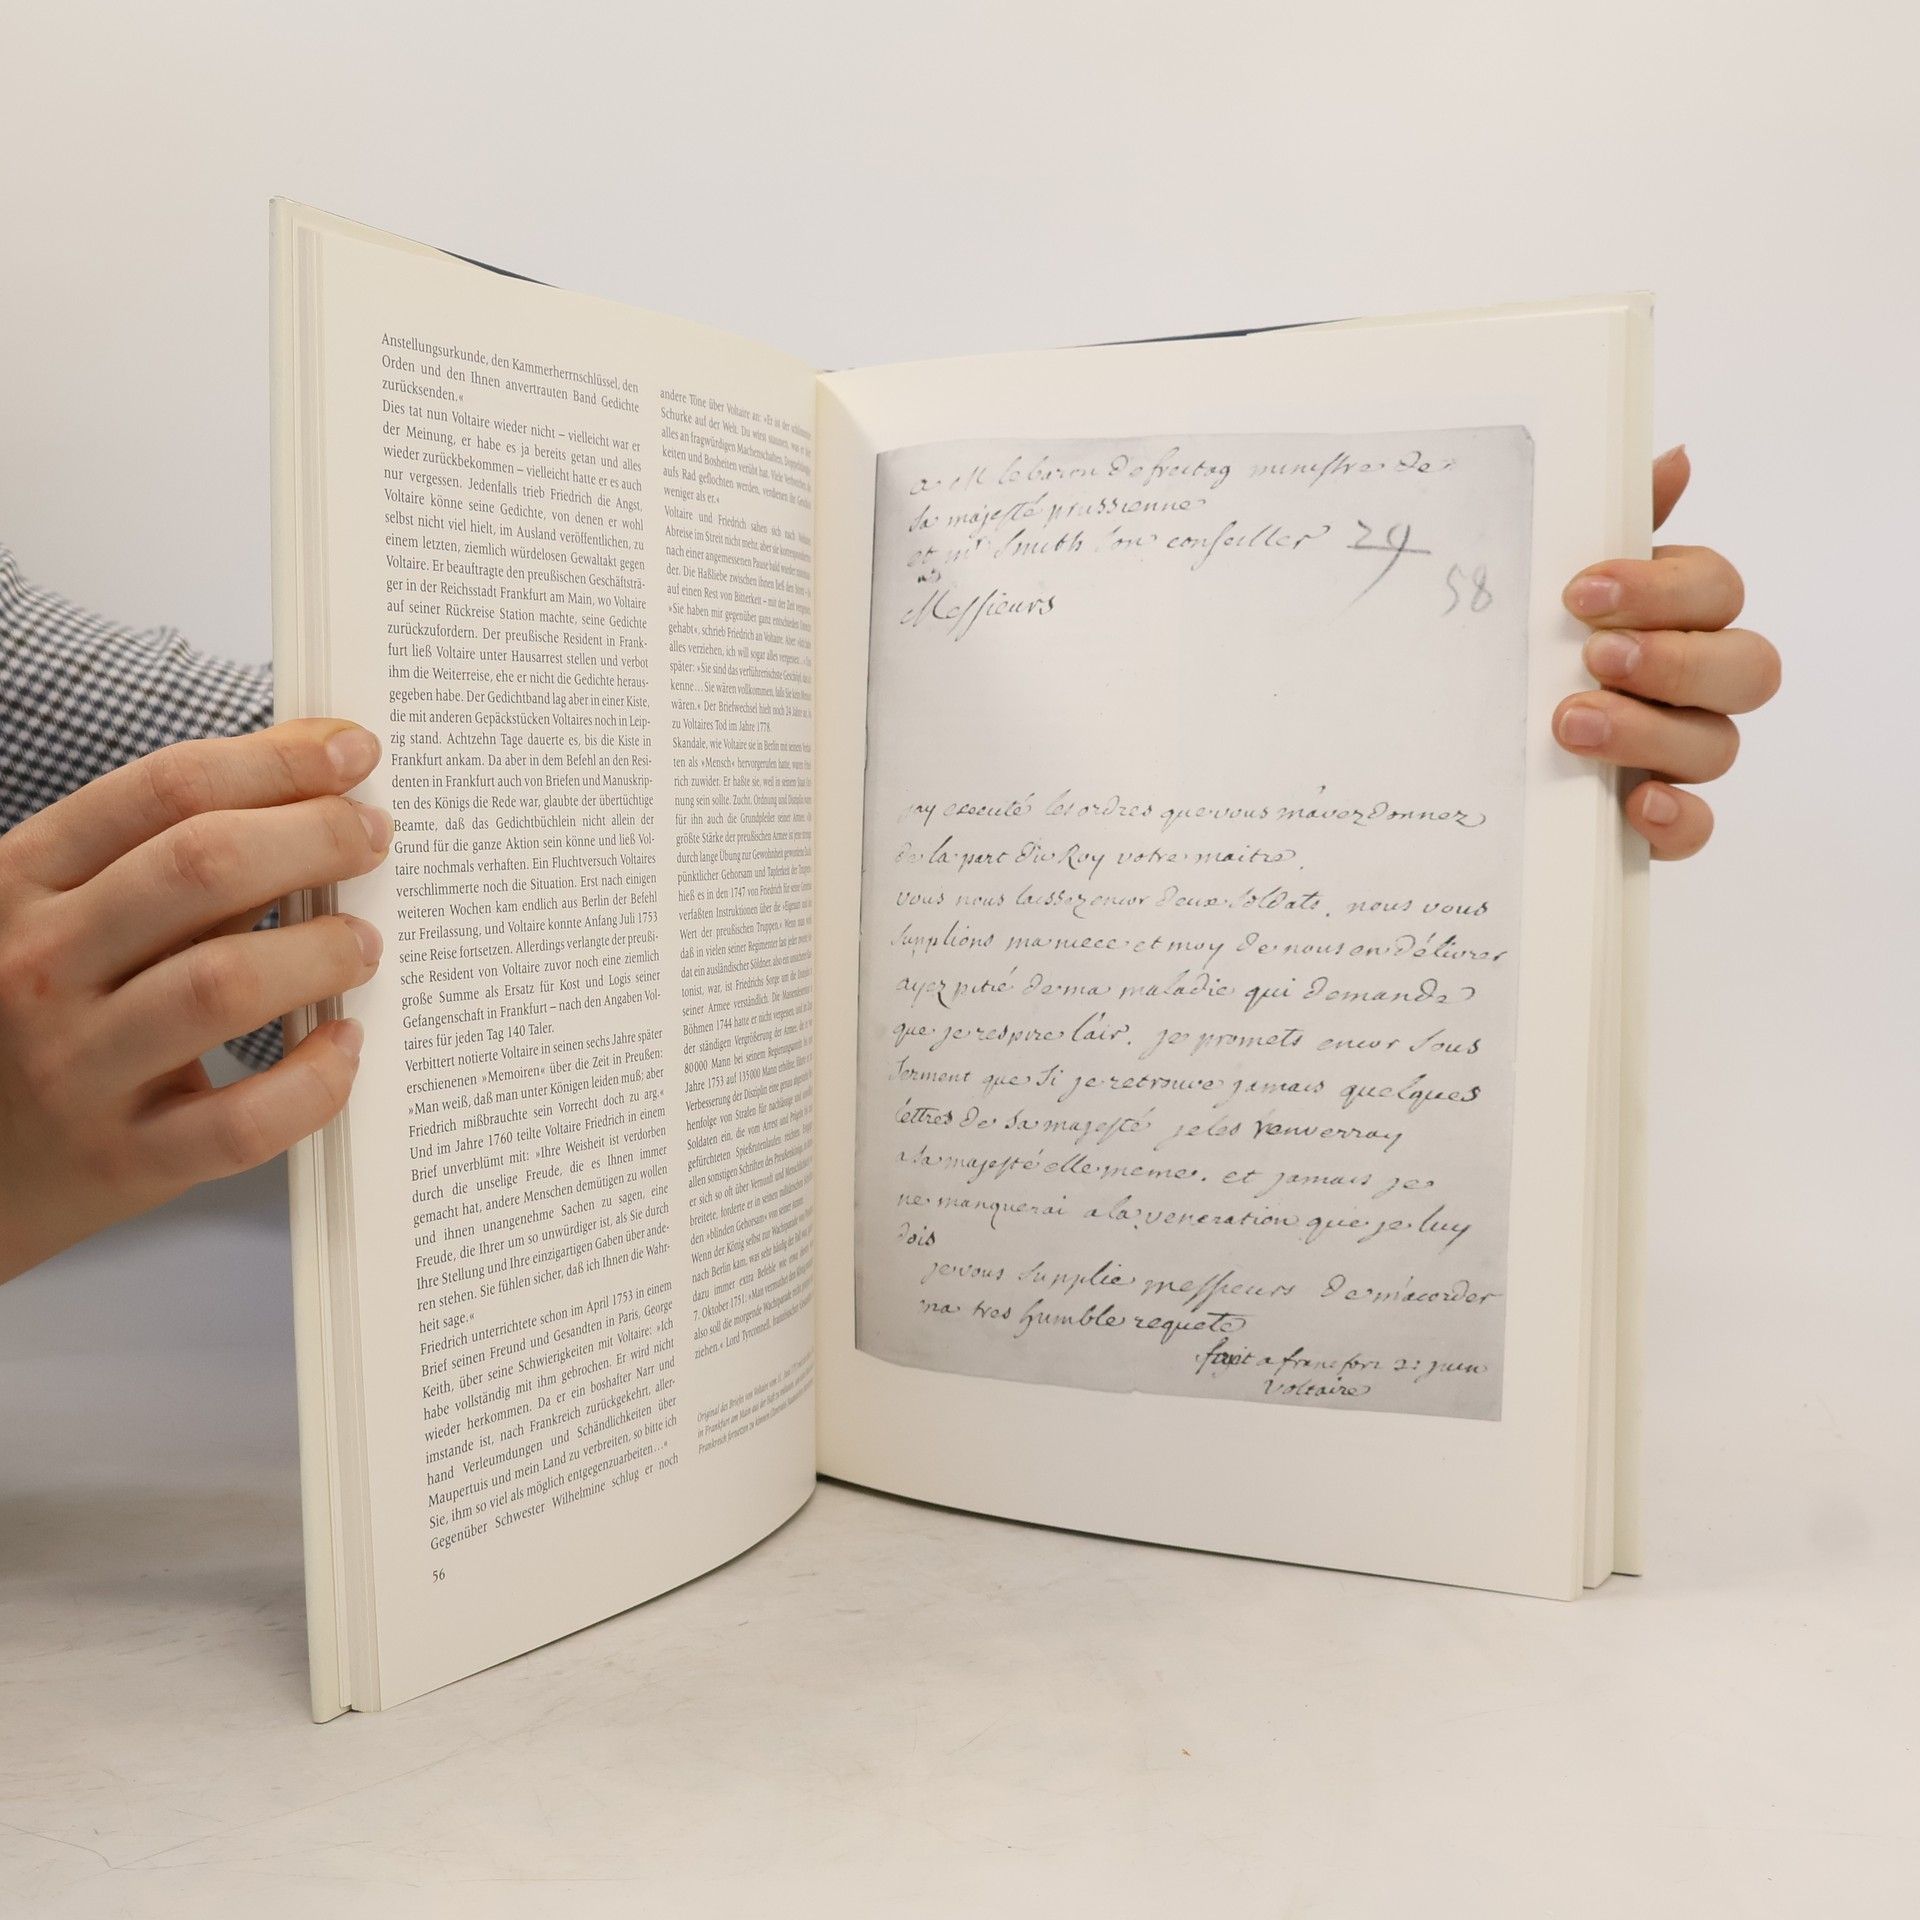 Anstellungsurkunde, den Kammerherrnschlüssel, den
Orden und den Ihnen anvertrauten Band Gedichte
zurücksenden.«
Dies tat nun Voltaire wieder nicht – vielleicht war er
der Meinung, er habe es ja bereits getan und alles
wieder zurückbekommen – vielleicht hatte er es auch
nur vergessen. Jedenfalls trieb Friedrich die Angst,
Voltaire könne seine Gedichte, von denen er wohl
selbst nicht viel hielt, im Ausland veröffentlichen, zu
einem letzten, ziemlich würdelosen Gewaltakt gegen
Voltaire. Er beauftragte den preußischen Geschäftsträ-
ger in der Reichsstadt Frankfurt am Main, wo Voltaire
auf seiner Rückreise Station machte, seine Gedichte
zurückzufordern. Der preußische Resident in Frank-
furt ließ Voltaire unter Hausarrest stellen und verbot
ihm die Weiterreise, ehe er nicht die Gedichte heraus-
gegeben habe. Der Gedichtband lag aber in einer Kiste,
die mit anderen Gepäckstücken Voltaires noch in Leip-
zig stand. Achtzehn Tage dauerte es, bis die Kiste in
Frankfurt ankam. Da aber in dem Befehl an den Resi-
denten in Frankfurt auch von Briefen und Manuskrip-
ten des Königs die Rede war, glaubte der übertüchtige
Beamte, daß das Gedichtbüchlein nicht allein der
Grund für die ganze Aktion sein könne und ließ Vol-
taire nochmals verhaften. Ein Fluchtversuch Voltaires
verschlimmerte noch die Situation. Erst nach einigen
weiteren Wochen kam endlich aus Berlin der Befehl
zur Freilassung, und Voltaire konnte Anfang Juli 1753
seine Reise fortsetzen. Allerdings verlangte der preußi-
sche Resident von Voltaire zuvor noch eine ziemlich
große Summe als Ersatz für Kost und Logis seiner
Gefangenschaft in Frankfurt – nach den Angaben Vol-
taires für jeden Tag 140 Taler.
Verbittert notierte Voltaire in seinen sechs Jahre später
erschienenen »Memoiren« über die Zeit in Preußen:
»Man weiß, daß man unter Königen leiden muß; aber
Friedrich mißbrauchte sein Vorrecht doch zu arg.«
Und im Jahre 1760 teilte Voltaire Friedrich in einem
Brief unverblümt mit: »Ihre Weisheit ist verdorben
durch die unselige Freude, die es Ihnen immer
gemacht hat, andere Menschen demütigen zu wollen
und ihnen unangenehme Sachen zu sagen, eine
Freude, die Ihrer um so unwürdiger ist, als Sie durch
Ihre Stellung und Ihre einzigartigen Gaben über ande-
ren stehen. Sie fühlen sicher, daß ich Ihnen die Wahr-
heit sage.«
Friedrich unterrichtete schon im April 1753 in einem
Brief seinen Freund und Gesandten in Paris, George
Keith, über seine Schwierigkeiten mit Voltaire: »Ich
habe vollständig mit ihm gebrochen. Er wird nicht
wieder herkommen. Da er ein boshafter Narr und
imstande ist, nach Frankreich zurückgekehrt, aller-
hand Verleumdungen und Schändlichkeiten über
Maupertuis und mein Land zu verbreiten, so bitte ich
Sie, ihm so viel als möglich entgegenzuarbeiten…«
Gegenüber Schwester Wilhelmine schlug er noch
56
andere Töne über Voltaire an: »Er ist der
Schurke auf der Welt. Du wirst staunen, was er
alles an fragwürdigen Machenschaften,
keiten und Bosheiten verübt hat. Viele
aufs Rad geflochten werden, verdienen
weniger als er.«
Voltaire und Friedrich sahen sich nach
Abreise im Streit nicht mehr, aber sie
nach einer angemessenen Pause bald wieder
der. Die Haßliebe zwischen ihnen ließ
auf einen Rest von Bitterkeit – mit der Zeit
»Sie haben mir gegenüber ganz entschieden
gehabt«, schrieb Friedrich an Voltaire. Aber:
alles verziehen, ich will sogar alles vergessen
später: »Sie sind das verführerischste Geschöpf, das
kenne… Sie wären vollkommen, falls Sie kein
wären.« Der Briefwechsel hielt noch 24 Jahre an,
zu Voltaires Tod im Jahre 1778.
Skandale, wie Voltaire sie in Berlin mit seinem
ten als »Mensch« hervorgerufen hatte, waren
rich zuwider. Er haßte sie, weil in seinem Staat
nung sein sollte. Zucht, Ordnung und Disziplin
für ihn auch die Grundpfeiler seiner Armee.
größte Stärke der preußischen Armee ist jene
durch lange Übung zur Gewohnheit gewordene
pünktlicher Gehorsam und Tapferkeit der Truppen
hieß es in den 1747 von Friedrich für seine
verfaßten Instruktionen über die
Wert der preußischen Truppen.« Wenn man
daß in vielen seiner Regimenter fast jeder
dat ein ausländischer Söldner, also ein unsicherer
tonist, war, ist Friedrichs Sorge um die
seiner Armee verständlich. Die
Böhmen 1744 hatte er nicht vergessen, und
der ständigen Vergrößerung der Armee, die er
80 000 Mann bei seinem Regierungsantritt bis
Jahre 1753 auf 135 000 Mann erhöhte, führte er
Verbesserung der Disziplin eine genau abgestufte
henfolge von Strafen für nachlässige und
Soldaten ein, die vom Arrest und Prügeln bis
gefürchteten Spießrutenlaufen reichten.
allen sonstigen Schriften des Preußenkönigs, in denen
er sich so oft über Vernunft und Menschlichkeit
breitete, forderte er in seinen militärischen
den »blinden Gehorsam« von seiner Armee.
Wenn der König selbst zur Wachtparade von
nach Berlin kam, was sehr häufig der Fall war,
dazu immer extra Befehle wie etwa
7. Oktober 1751: »Man vermuthet den König
also soll die morgende Wachtparade recht
ziehen.« Lord Tyrconnell, französischer
Original des Briefes von Voltaire vom
in Frankfurt am Main aus der Haft zu entlassen,
Frankreich fortsetzen zu können
a M le baron de freitag ministre de
sa majesté prussienne
et mr Smith son conseiller 29
58
Messieurs
jay executé les ordres que vous m'avez donnez
de la part du Roy votre maitre.
vous nous laissez encor deux soldats. nous vous
supplions ma niece et moy de nous en délivrer
ayez pitié de ma maladie qui demande
que je respire l'air. je promets encor sous
serment que si je retrouve jamais quelques
lettres de sa majesté je les renverray
a sa majesté elle meme. et jamais je
ne manquerai a la veneration que je luy
dois
je vous supplie messieurs de m'acorder
ma tres humble requete
fait a francfort 21 juin
Voltaire